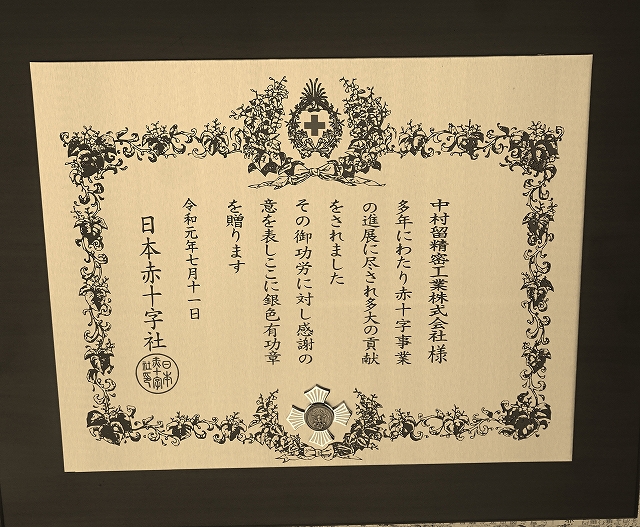 中村留精密工業株式会社 様
多年にわたり赤十字事業
の進展に尽され多大の貢献
をされました
その御功労に対し感謝の
意を表しここに銀色有功章
を贈ります
令和元年七月十一日
日本赤十字社
日本赤十字社印